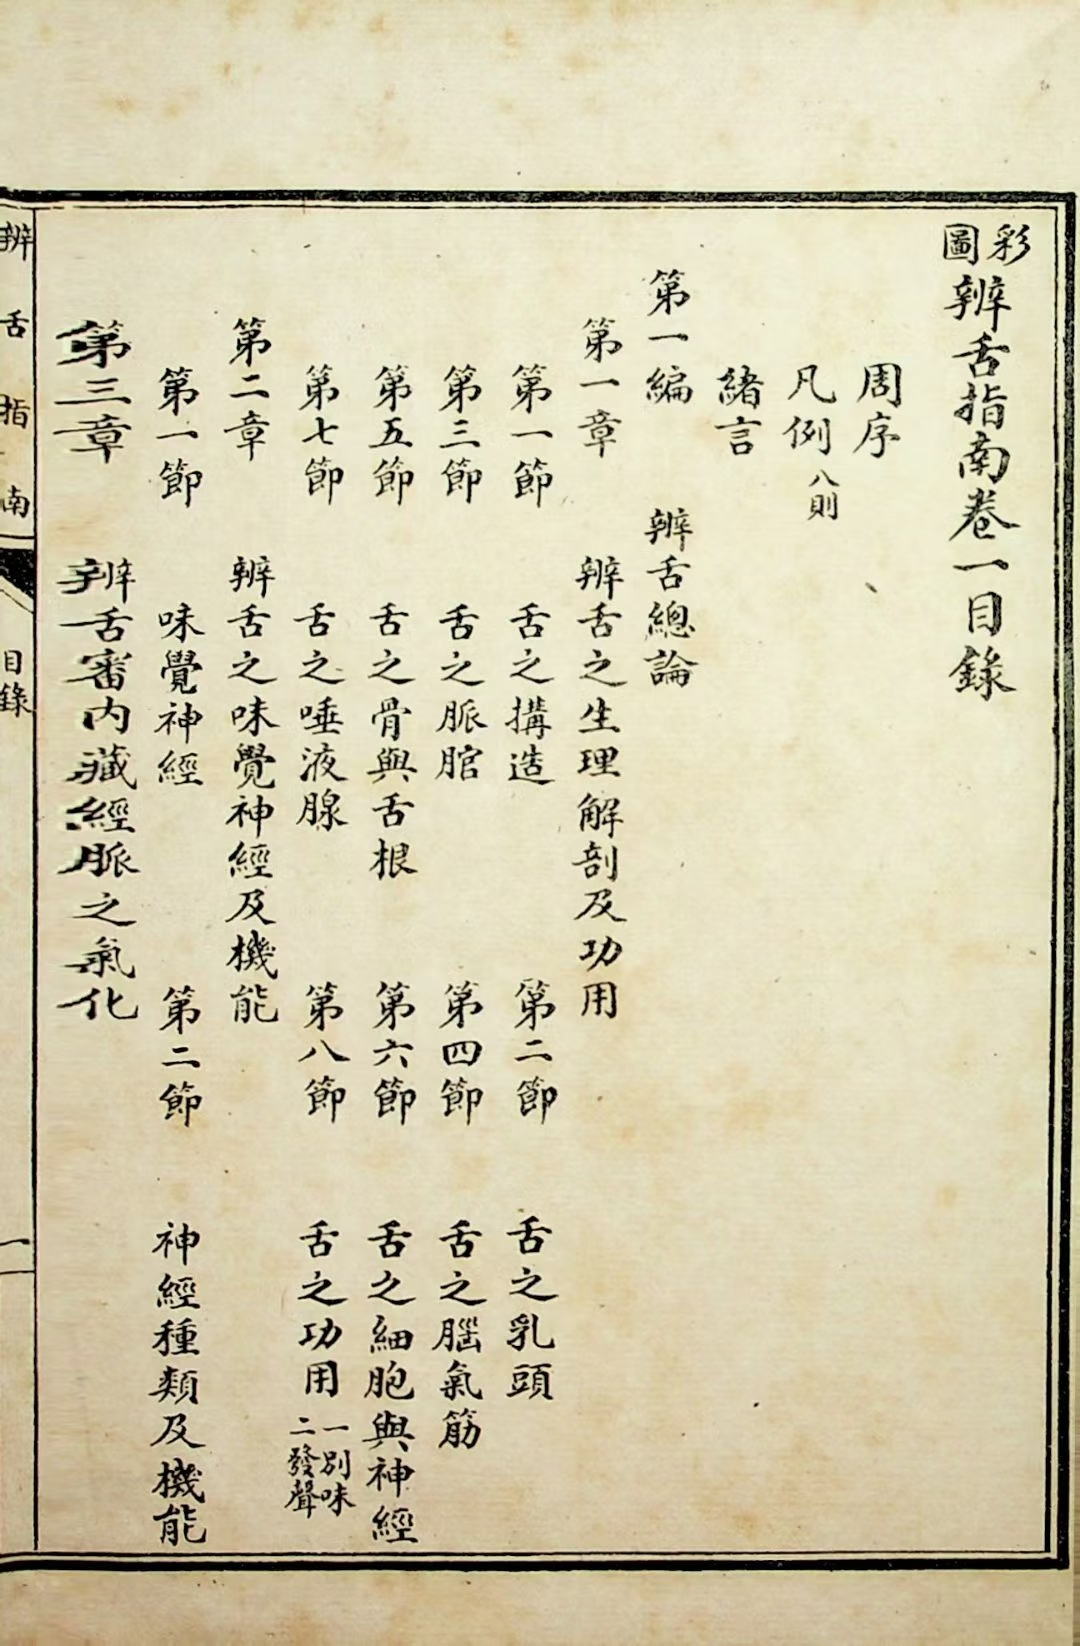 彩圖辨舌指南卷一目錄
周序
凡例八則
緒言
第一編 辨舌總論
第一章 辨舌之生理解剖及功用
第一節 舌之搆造 第二節 舌之乳頭
第三節 舌之脈腒 第四節 舌之腦氣筋
第五節 舌之骨與舌根 第六節 舌之細胞與神經
第七節 舌之唾液腺 第八節 舌之功用 一別味 二發聲
第二章 辨舌之味覺神經及機能
第一節 味覺神經 第二節 神經種類及機能
第三章 辨舌審內藏經脈之氣化
辨舌指南 目錄 一